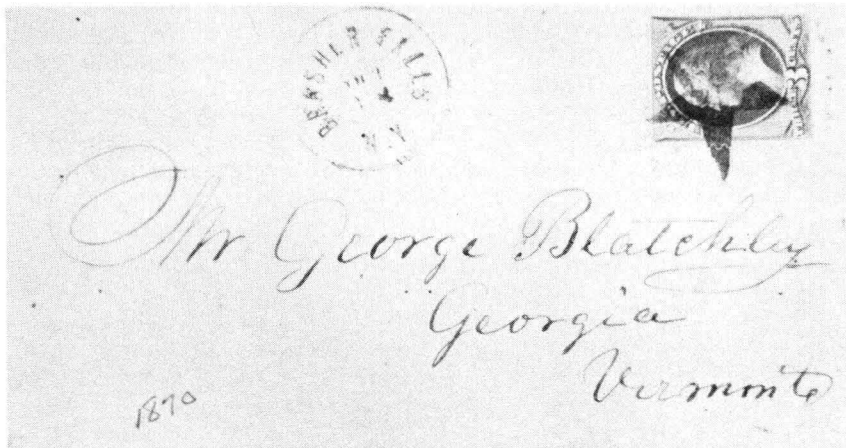 BRASHER FALLS N.Y.
3
Mr George Blatchley
Georgia
Vermont
1870